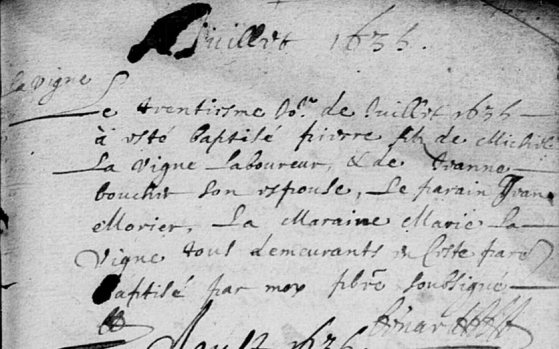 Juillet 1635.
la vigne
Le trentiesme Jor. de Juillet 1635
à esté baptisé pierre fils de Michel
La vigne Laboureur, & de Jeanne
boucher son espouse, Le parain Jean
Morier, La Maraine Marie La
vigne tous demeurants en Ceste paro
baptisé par moy pbre soubsigné
Aoust 1635